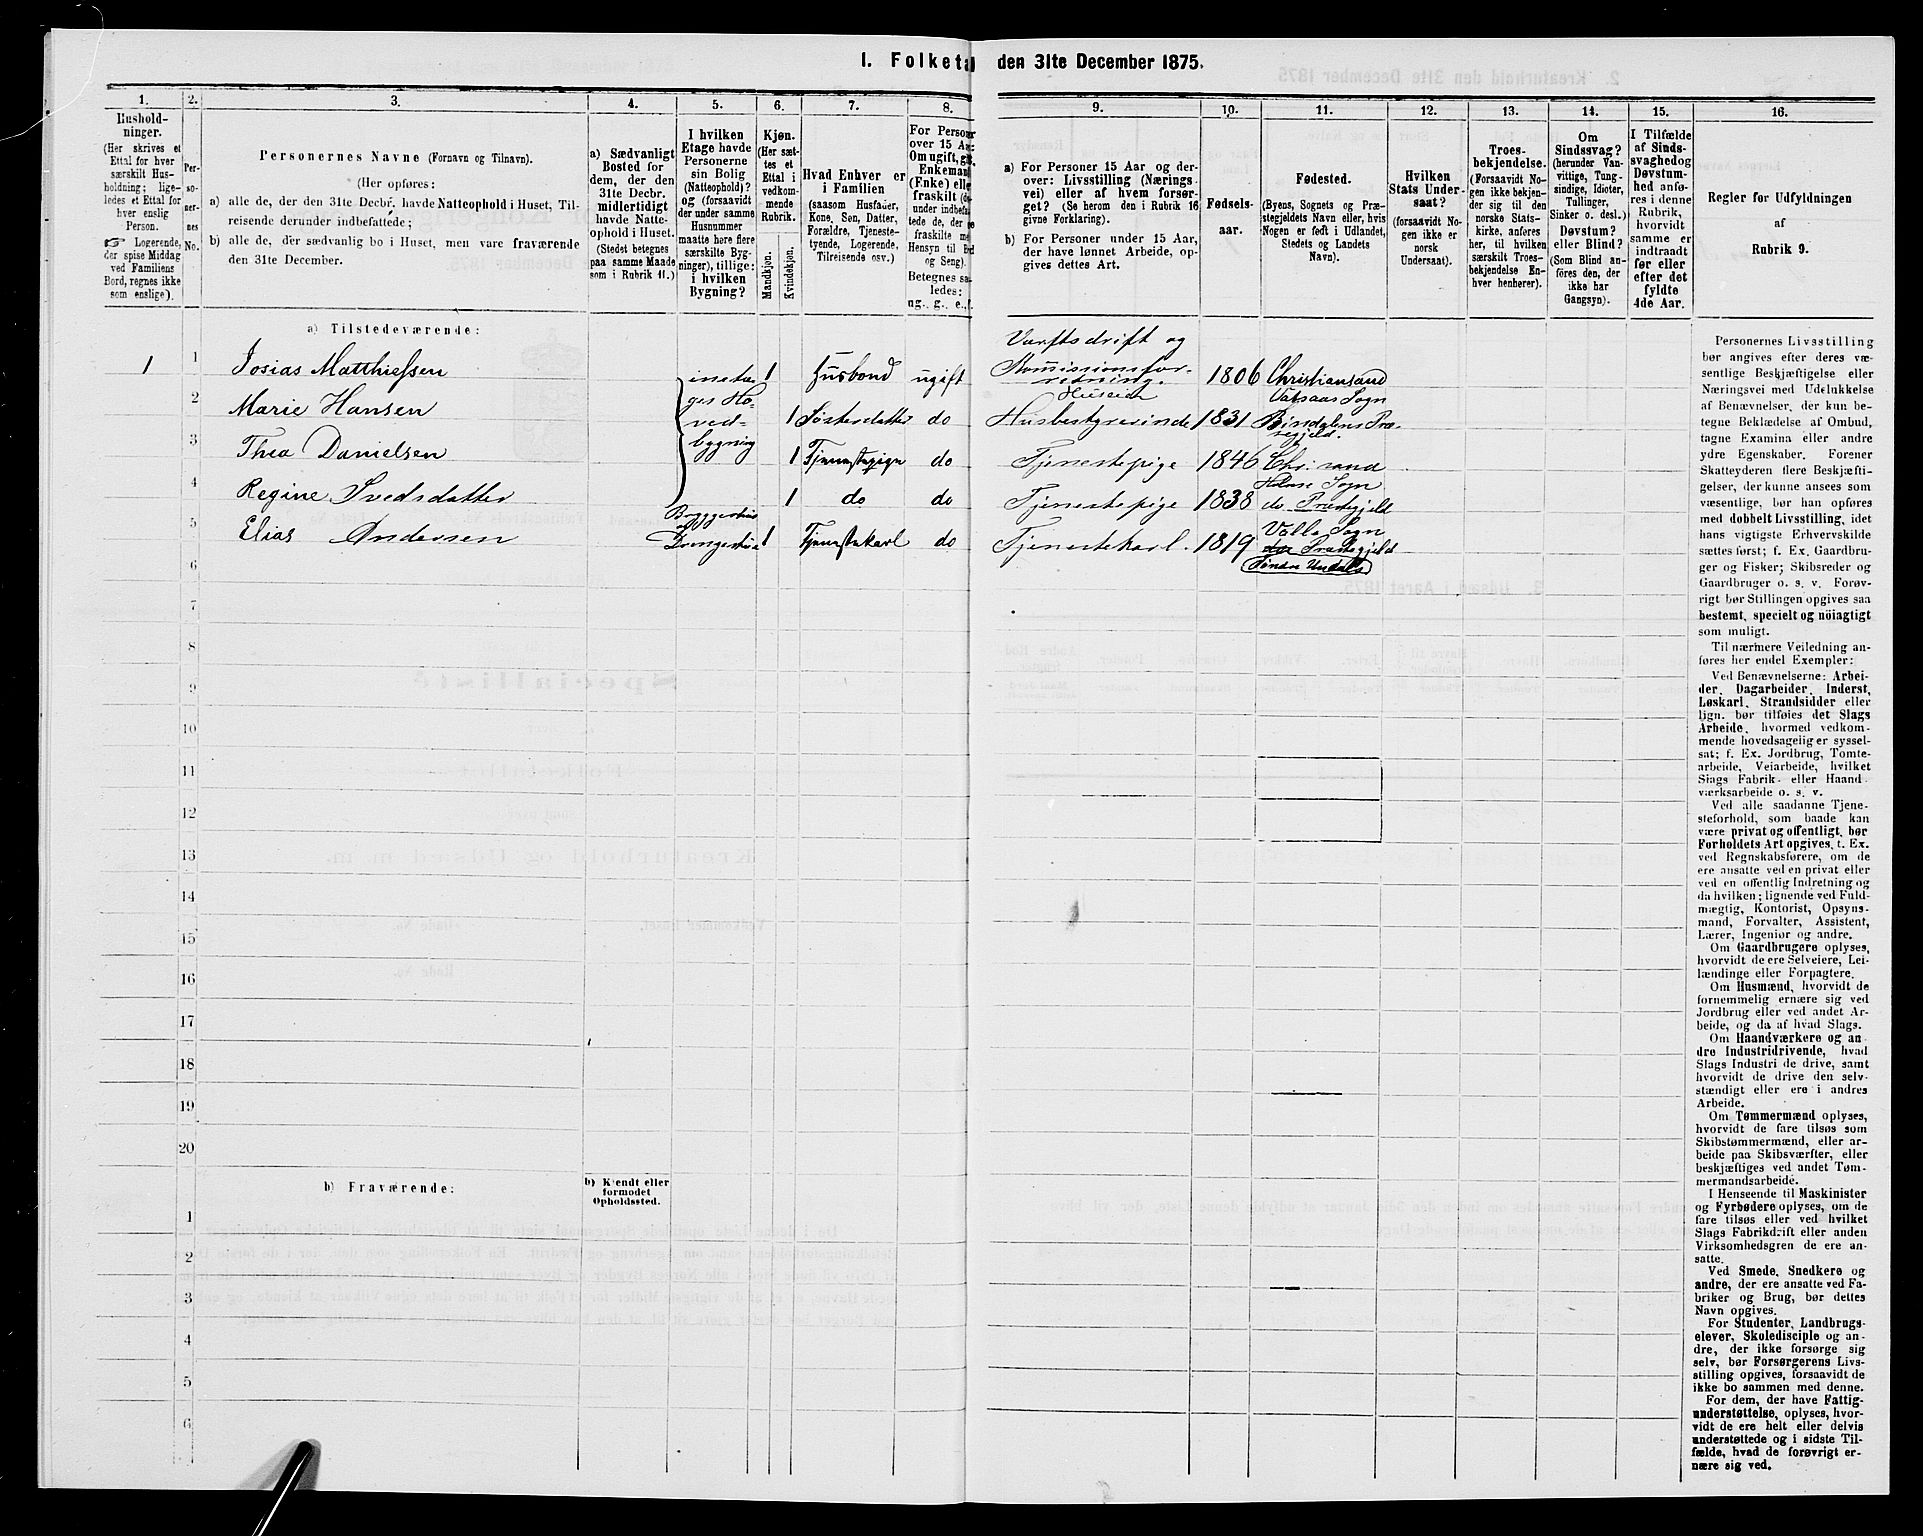 1. Folketal den 31te December 1875.
1.
Hushold-
ninger.
(Her skrives et
Ettal for hver
særskilt Hus-
holdning; lige-
ledes et Ettal for
hver enslig
Person.
Logerende,
der spise Middag
ved Familiens
Bord, regnes ikke
som enslige).
2.
Per-
so-
ner-
nes
No.
3.
Personernes Navne (Fornavn og Tilnavn).
(Her opføres:
a) alle de, der den 31te Decbr. havde Natteophold i Huset, Til-
reisende derunder indbefattede;
b) alle de, der sædvanlig bo i Huset, men vare fraværende
den 31te December.
4.
a) Sædvanligt
Bosted for
dem, der den
31te Decbr.
midlertidigt
havde Natte-
ophold i Huset.
(Stedet betegnes
paa samme Maade
som i Rubrik 11.)
5.
I hvilken
Etage havde
Personerne
sin Bolig
(Natteophold)?
og (forsaavidt
der under samme
Husnummer
maatte høre flere
særskilte Byg-
ninger), tillige:
i hvilken
Bygning?
6.
Kjøn.
(Her sæt-
tes et
Ettal i
vedkom-
mende
Rubrik.
Mandkjøn.
Kvindekjøn.
7.
Hvad Enhver er
i Familien
(saasom Husfader,
Kone, Søn, Datter,
Forældre, Tjeneste-
tyende, Logerende,
Tilreisende osv.)
8.
For Personer
over 15 Aar:
Om ugift, gift,
Enkemand
(Enke) eller
fraskilt
Betegnes saa-
ledes:
ug., g., e., f.
9.
a) For Personer 15 Aar og der-
over: Livsstilling (Nærings-
vei) eller af hvem forsør-
get? (Se herom den i Rubrik 16
givne Forklaring).
b) For Personer under 15 Aar,
der have lønnet Arbeide, op-
gives dettes Art.
10.
Fødsels-
aar.
11.
Fødested.
(Byens, Sognets og Præ-
stegjeldets Navn eller, hvis
Nogen er født i Udlandet,
Stedets og Landets
Navn).
12.
Hvilken
Stats Under-
saat?
(forsaavidt No-
gen ikke er
norsk
Undersaat).
13.
Troes-
bekjendelse.
(Forsaavidt No-
gen ikke bekjen-
der sig til den
norske Stats-
kirke, anføres
her, til hvilken
særskilt Troes-
bekjendelse En-
hver henhører).
14.
Om
Sindssvag?
(herunder Van-
vittige, Tung-
sindige, Idioter,
Tullinger,
Sinker o. desl.)
Døvstum?
eller Blind?
(Som Blind an-
føres den, der
ikke har
Gangsyn).
15.
I Tilfælde
af Sinds-
svaghedog
Døvstum-
hed anfø-
res i denne
Rubrik,
hvorvidt
samme er
indtraadt
før eller
efter det
fyldte
4de Aar.
16.
Regler for Udfyldningen
af
Rubrik 9.
a) Tilstedeværende:
Varftsdrift og
1 1 Josias Matthiessen 1 Husbond ugift Kommissionsfor-
retning. 1806 Christiansand
2 Marie Hansen 1 Søsterdatter do Husbestyrerinde 1831 Vatsaas Sogn
Bindalens Præ-
stegjeld.
ved-
bygning
3 Thea Danielsen 1 Tjenestepige do Tjenestepige 1846 Chr.sand
4 Regine Svedsdatter 1 do do Tjenestepige 1838 Sogn
do. Præstegjeld
Bryggerhus
5 Elias Andersen 1 Tjenestekarl do Tjenestekarl. 1819 Valle Sogn
Præstegjeld
Undals
6
7
8
9
10
11
12
13
14
15
16
17
18
19
20
b) Fraværende:
b) Kjendt eller
formodet
Opholdssted.
1
2
3
4
5
6
Personernes Livsstilling
bør angives efter deres væ-
sentlige Beskjæftigelse eller
Næringsvei med Udelukkelse
af Benævnelser, der kun be-
tegne Beklædelse af Ombud,
tagne Examina eller andre
ydre Egenskaber. Forener
Skatteyderen flere Beskjæfti-
gelser, der kunne ansees som
væsentlige, bør han opføres
med dobbelt Livsstilling, idet
hans vigtigste Erhvervskilde
sættes først; f. Ex. Gaardbru-
ger og Fisker; Skibsreder og
Gaardbruger o. s. v. Forøv-
rigt bør Stillingen opgives saa
bestemt, specielt og nöiagtigt
som muligt.
Til nærmere Veiledning an-
føres her endel Exempler:
Ved Benævnelserne: Arbei-
der, Dagarbeider, Inderst,
Løskarl, Strandsidder eller
lign. bør tilføies det Slags
Arbeide, hvormed vedkom-
mende hovedsagelig er syssel-
sat; f. Ex. Jordbrug, Tomte-
arbeide, Veiarbeide, hvilket
Slags Fabrik- eller Haand-
værksarbeide o. s. v.
Ved alle saadanne Tjene-
steforhold, som baade kan
være privat og offentligt, bør
Forholdets Art opgives, t. Ex.
ved Regnskabsførere, om de
ere ansatte ved en privat eller
ved en offentlig Indretning og
da hvilken; lignende ved Fuld-
mægtig, Kontorist, Opsyns-
mand, Forvalter, Assistent,
Lærer, Ingeniør og andre.
Om Gaardbrugere oplyses,
hvorvidt de ere Selveiere, Lei-
lændinge eller Forpagtere.
Om Husmænd, hvorvidt de
fornemmelig ernære sig ved
Jordbrug eller ved andet Ar-
beide, og da af hvad Slags.
Om Haandværkere og an-
dre Industridrivende, hvad
Slags Industri de drive, samt
hvorvidt de drive den selv-
stændigt eller ere i andres
Arbeide.
Om Tømmermænd oplyses,
hvorvidt de fare tilsøs som
Skibstømmermænd, eller ar-
beide paa Skibsværfter, eller
beskjæftiges ved andet Tøm-
mermandsarbeide.
I Henseende til Maskinister
og Fyrbødere oplyses, om de
fare tilsøs eller ved hvilket
Slags Fabrikdrift eller anden
Virksomhedsgren de ere an-
satte.
Ved Smede, Snedkere og
andre, der ere ansatte ved Fa-
briker og Brug, bør dettes
Navn opgives.
For Studenter, Landbrugs-
elever, Skoledisciple og an-
dre, der ikke forsørge sig
selv, bør Forsørgerens Livs-
stilling opgives, forsaavidt de
ikke bo sammen med denne.
For dem, der have Fattig-
understøttelse, oplyses, hvor-
vidt de ere helt eller delvis
understøttede og i sidste Til-
fælde, hvad de forøvrigt er-
nære sig ved.